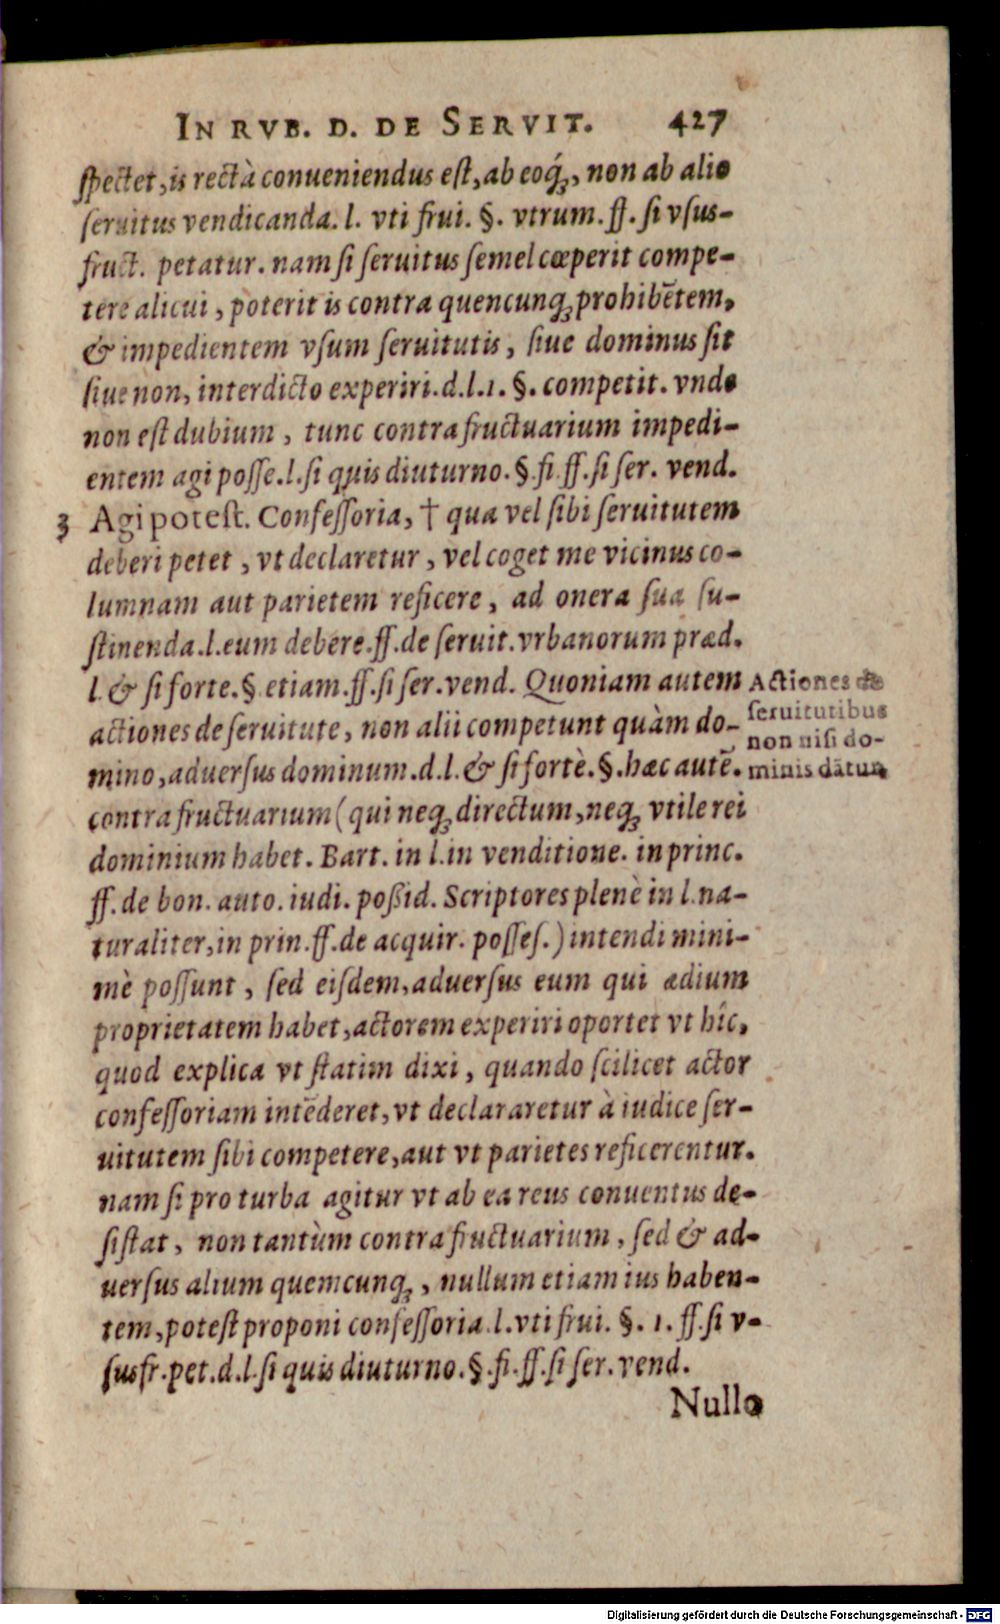 IN RVB. D. DE SERVIT. 427
ſpectet, is rectà conueniendus eſt, ab eoq́ꝫ, non ab alio
ſeruitus vendicanda. l. vti frui. §. vtrum. ff. ſi vſus-
fruct. petatur. nam ſi ſeruitus ſemel cœperit compe-
tere alicui, poterit is contra quencunqꝫ prohibētem,
& impedientem vſum ſeruitutis, ſiue dominus ſit
ſiue non, interdicto experiri. d. l. 1. §. competit. vnde
non eſt dubium, tunc contra fructuarium impedi-
entem agi poſſe. l. ſi quis diuturno. §. fi. ff. ſi ſer. vend.
3 Agi potest. Confeſſoria, † qua vel ſibi ſeruitutem
deberi petet, vt declaretur, vel coget me vicinus co-
lumnam aut parietem reficere, ad onera ſua ſu-
ſtinenda. l. eum debere. ff. de ſeruit. vrbanorum præd.
l. & ſi forte. §. etiam. ff. ſi ſer. vend. Quoniam autem
actiones de ſeruitute, non alii competunt quàm do-
mino, aduerſus dominum. d. l. & ſi fortè. §. hæc autē.
contra fructuarium (qui neqꝫ directum, neqꝫ vtile rei
dominium habet. Bart. in l. in venditione. in princ.
ff. de bon. auto. iudi. poßid. Scriptores plenè in l. na-
turaliter, in prin. ff. de acquir. poſſeſ.) intendi mini-
mè poſſunt, ſed eiſdem, aduerſus eum qui ædium
proprietatem habet, actorem experiri oportet vt hîc,
quod explica vt ſtatim dixi, quando ſcilicet actor
confeſſoriam intēderet, vt declararetur à iudice ſer-
uitutem ſibi competere, aut vt parietes reficerentur.
nam ſi pro turba agitur vt ab ea reus conuentus de-
ſiſtat, non tantùm contra fructuarium, ſed & ad-
uerſus alium quemcunqꝫ, nullum etiam ius haben-
tem, poteſt proponi confeſſoria. l. vti frui. §. 1. ff. ſi v-
ſusfr. pet. d. l. ſi quis diuturno. §. fi. ff. ſi ſer. vend.
Nullo
Actiones de
ſeruitutibus
non niſi do-
minis dātur
Digitalisierung gefördert durch die Deutsche Forschungsgemeinschaft - DFG